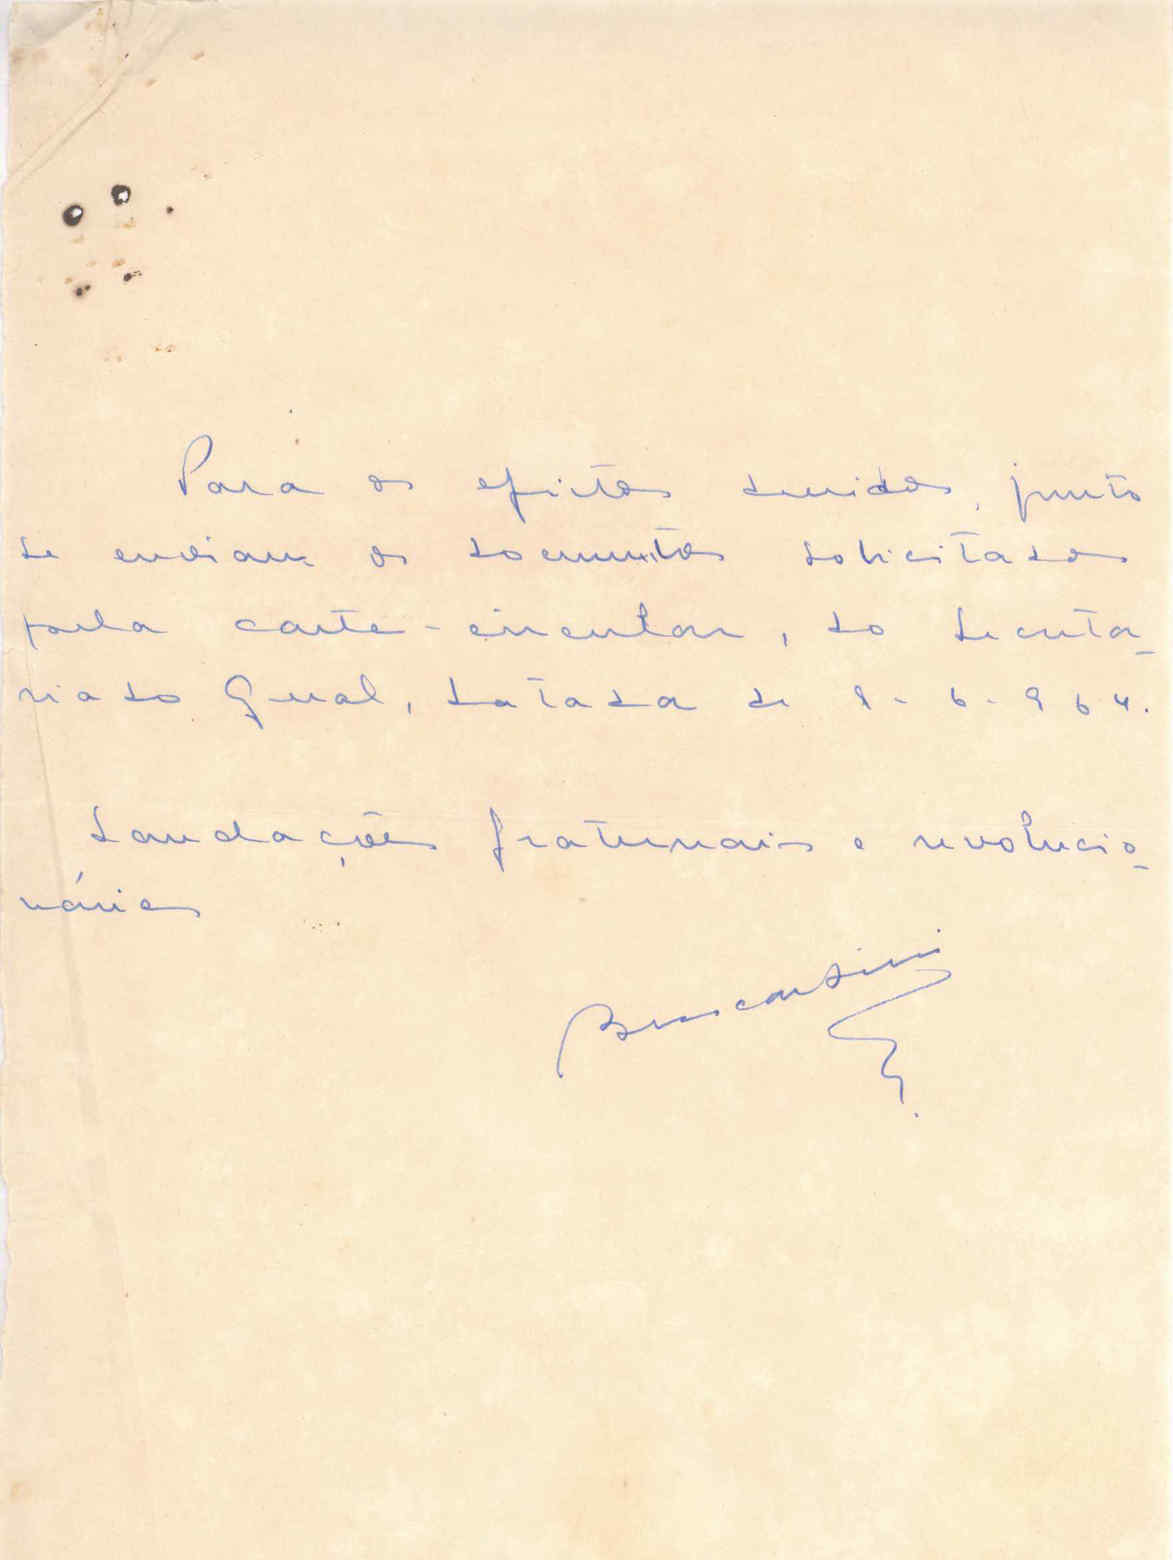 Para os efeitos devidos, junto
se enviam os documentos solicitados
pela carta-circular, do Secreta-
riado Geral, datada de 9-6-964.
Saudações fraternais e revolucio-
nárias